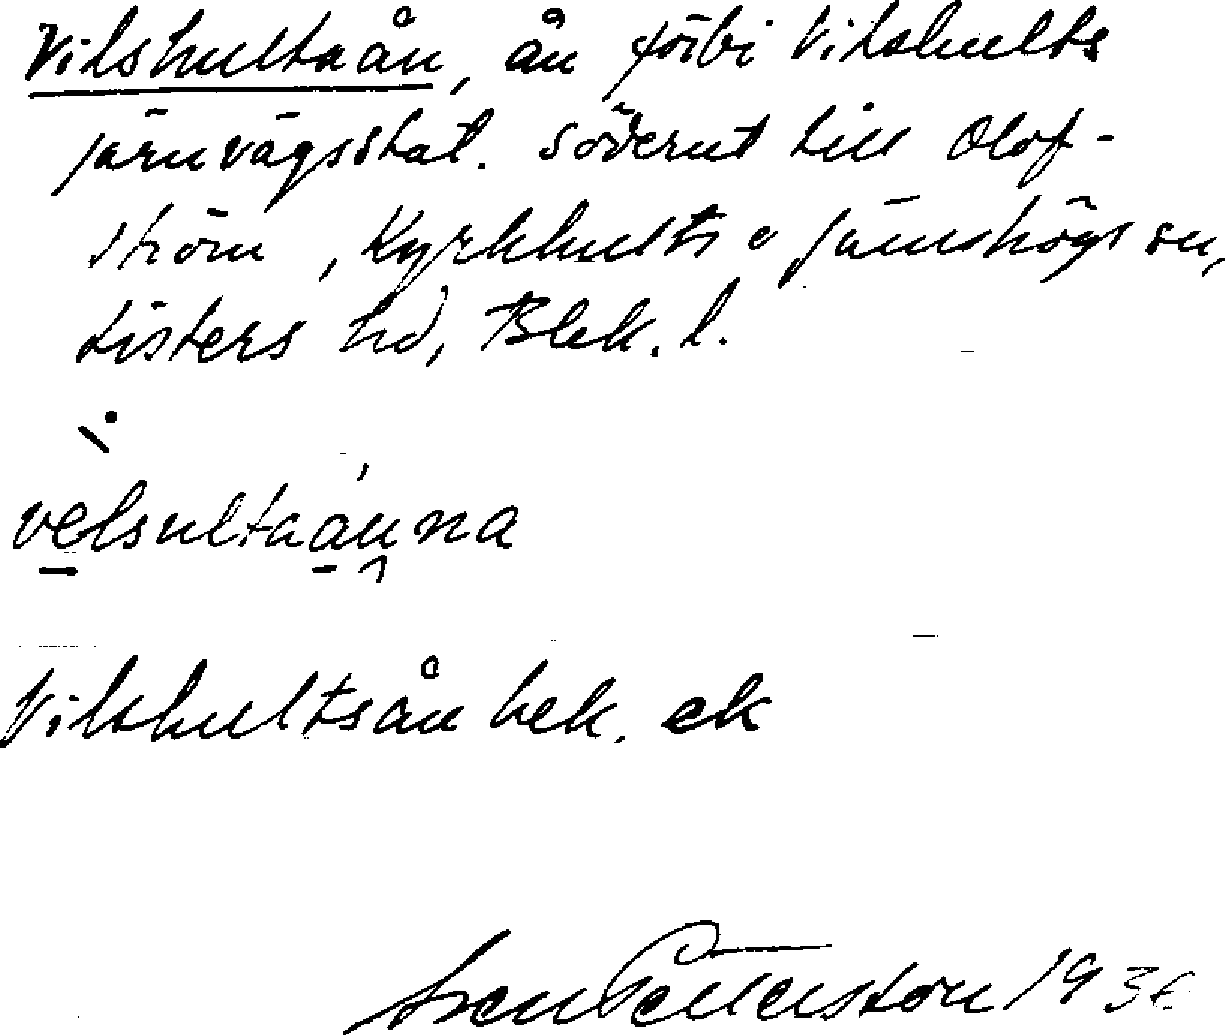 Vilshultaån, ån förbi Vilshults
järnvägsstat. söderut till Olof-
ström, Kyrkhults o Jämshögs sn,
Listers hd, Blek. l.
velsultaånna
Vilshultsån bek. ek
Sven Petterston 193